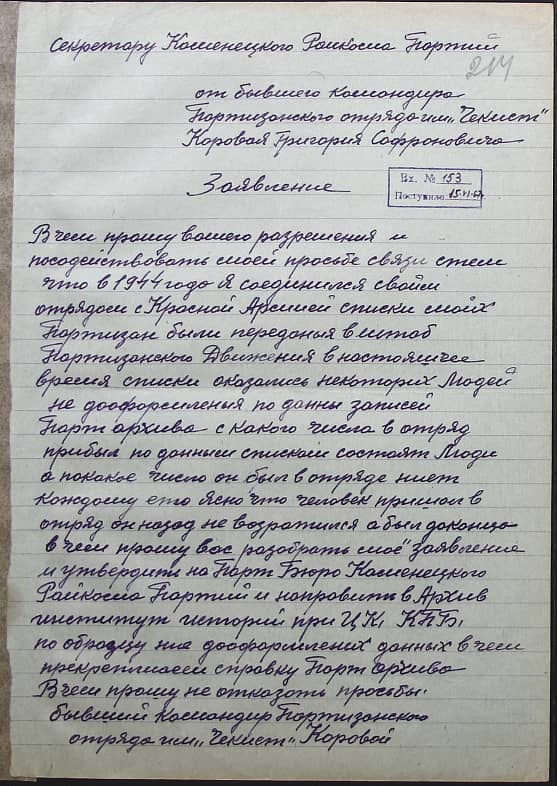 Секретору Каменецкого Райкома Партий
214
от бывшего командира
Партизанского отряда им „Чекист"
Коровая Григория Софроновича
Заявление
Вх. № 153
Поступило 15.VI.67г.
В чем прошу вашего разрешения и
посодействовать моей просьбе связи стем
что в 1944 годо Я соединился свойм
отрядом с Красной Армией списки мойх
Партизан были переданыя в штаб
Партизанского Движения в настоящее
время списки оказались некоторих Людей
не дооформленыя по данны записей
Парт архива с какого числа в отряд
прибыл по данным спискам состоят Люди
а покакое число он был в отряде ниет
Каждому ето Ясно что человек пришол в
отряд он назад не возратился а был доконцо
в чем прошу вас разобрать моё заявление
и утвердити на Парт Бюро Каменецкого
Райкома Партий и направить в Архив
институт историй при ЦК, КПБ,
по образцу ние дооформлених данных в чем
прекрепляем справку Парт архива
В чем прошу не отказоть просьбы.
бывший Командир Партизанского
отряда им „Чекист" Коровой